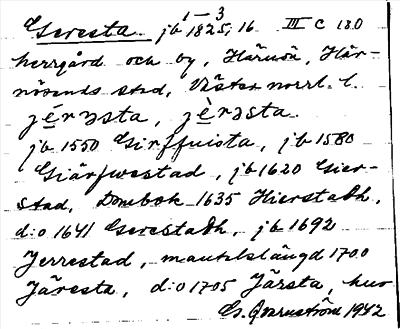 1–3
Geresta jb 1825, 16 III C 18.0
herrgård och by, Härnön, Här-
nösands stad, Väster norrl. l.
jb 1550 Girffuista, jb 1580
Giärfwestad, jb 1620 Gier-
stad, Domebok 1635 Hierstadh,
d:o 1641 Gerestadh, jb 1692
Jerrestad, mantalslängd 1700
Järesta, d:o 1705 Järsta, hur
1942